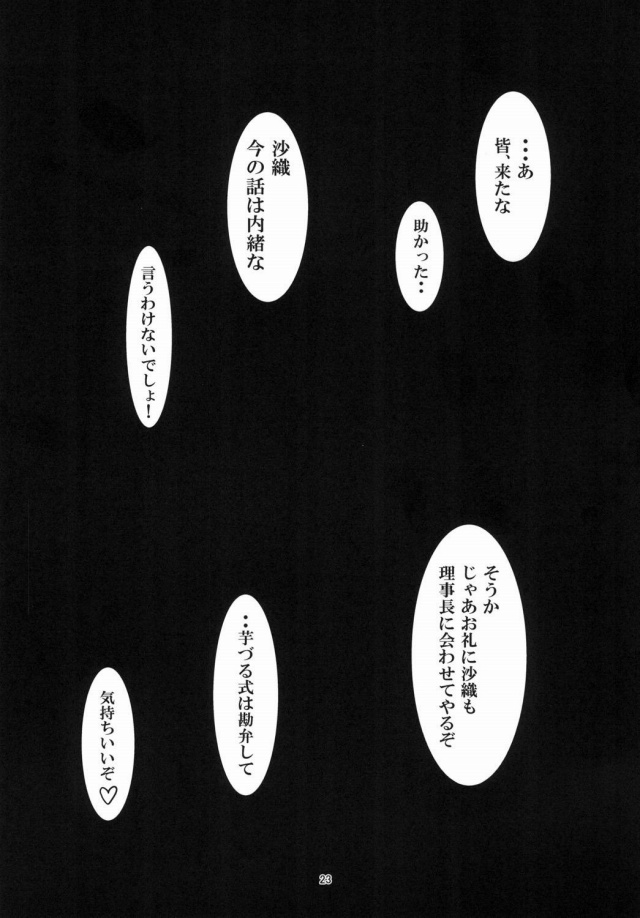 …あ
皆、来たな
助かった‥
沙織
今の話は内緒な
言うわけないでしょ！
そうか
じゃあお礼に沙織も
理事長に会わせてやるぞ
‥芋づる式は勘弁して
気持ちいいぞ♡
23